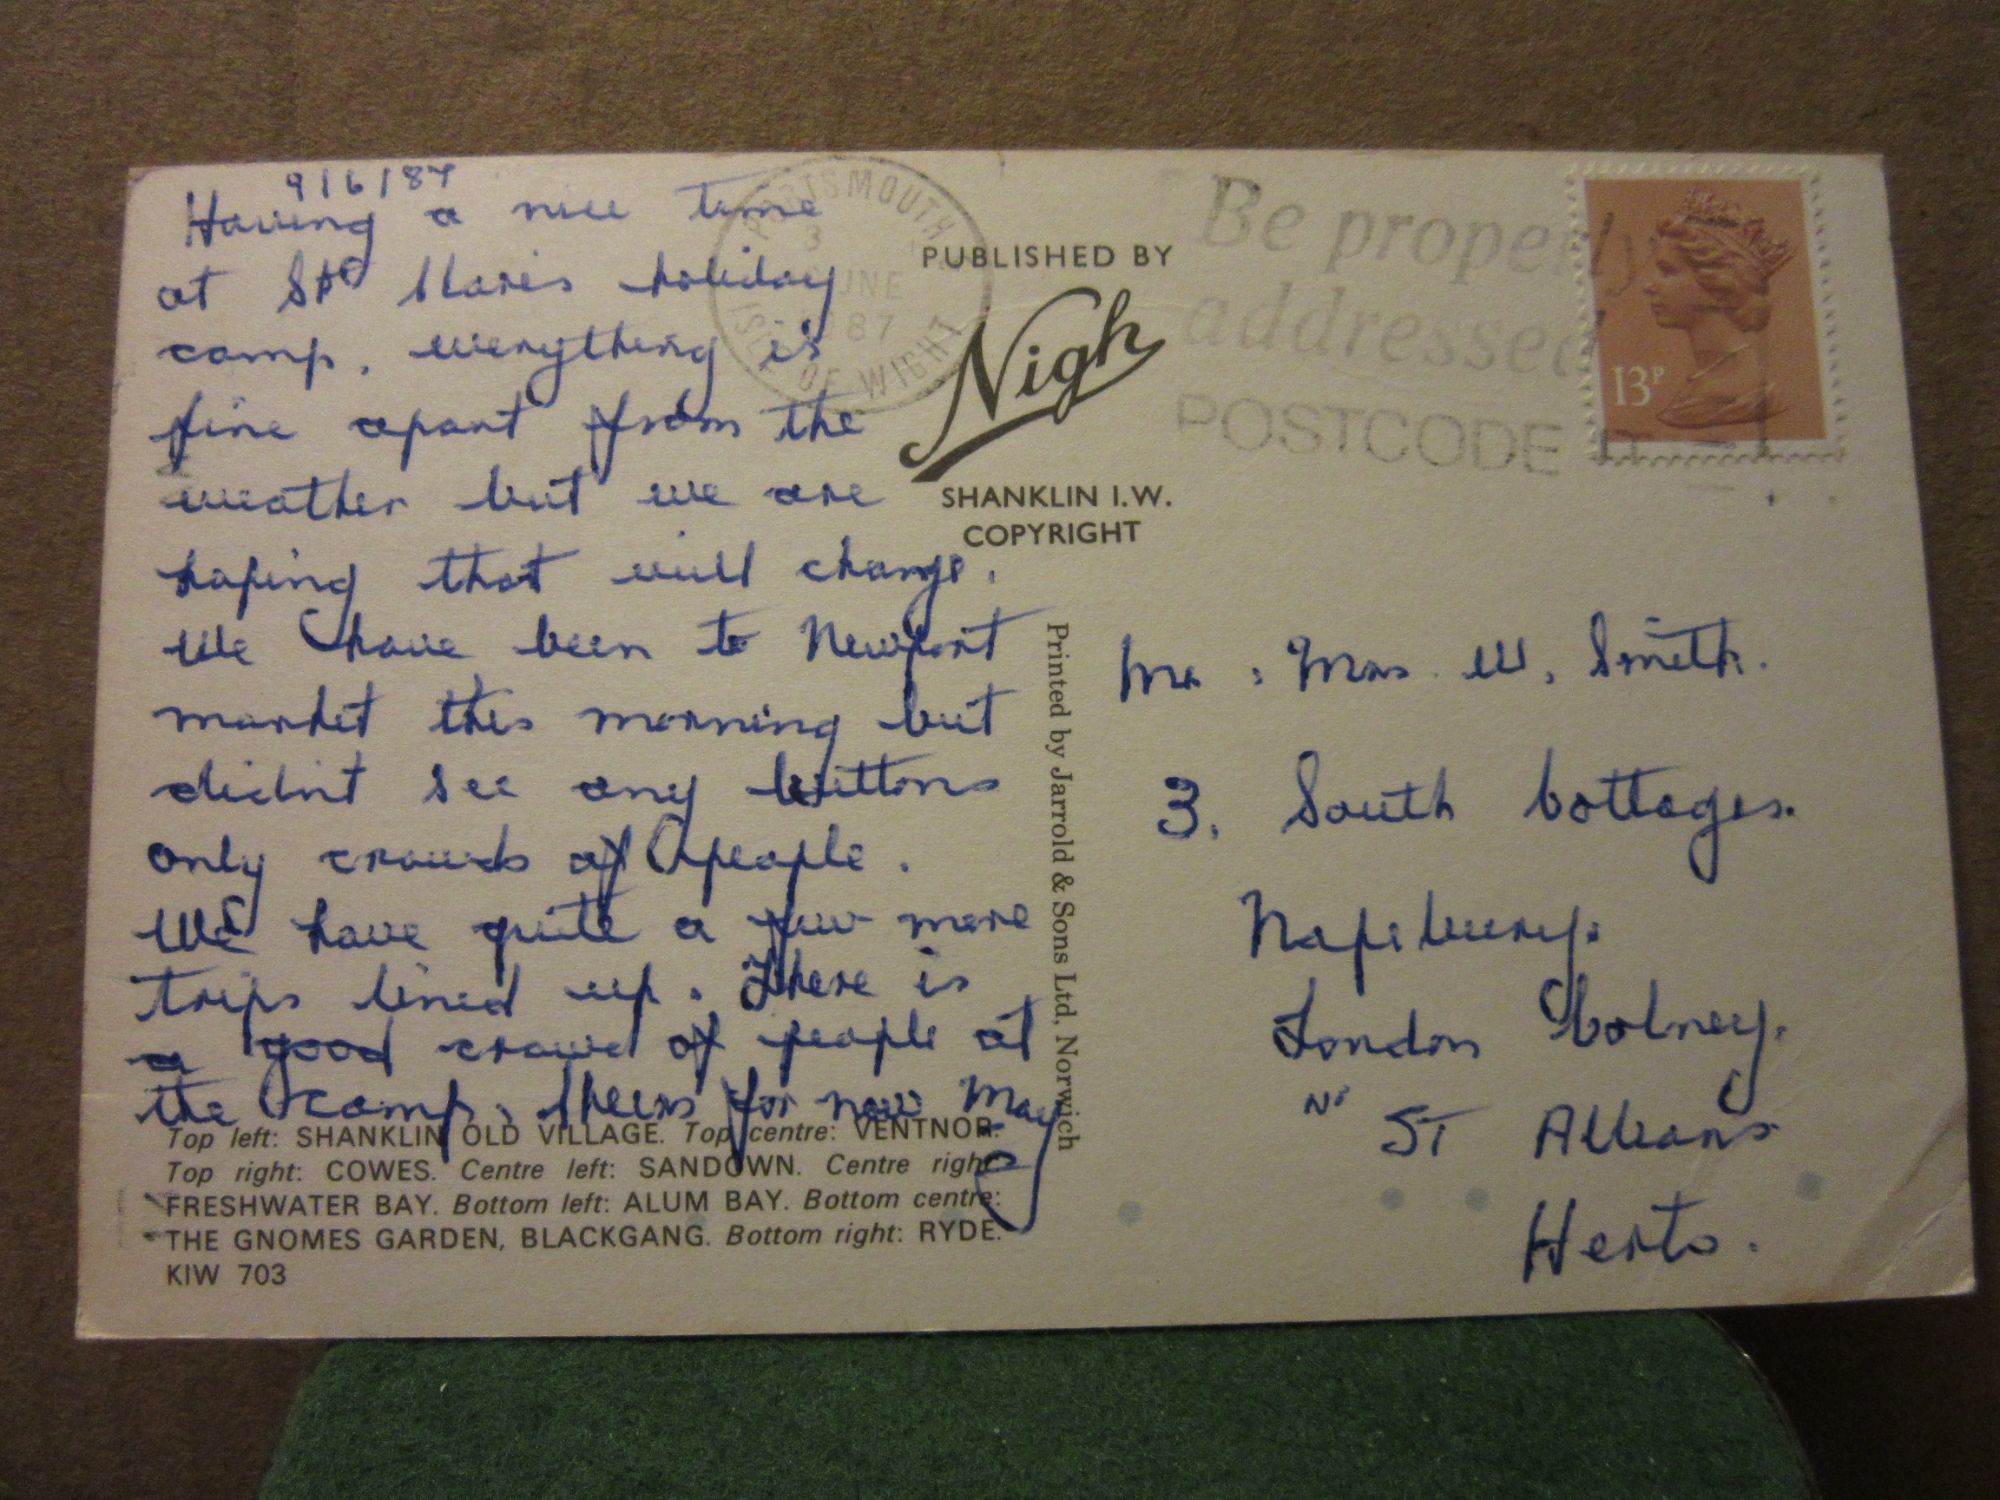 9/6/87
Having a nice time
at St Clares holiday
camp, everything is
fine apart from the
weather but we are
hoping that will change.
We have been to Newport
market this morning but
didn't see any
only crowds of people.
We have quite a few more
trips lined up. There is
a good crowd of people at
the camp. Cheers for now May
Top left: SHANKLIN OLD VILLAGE. Top centre: VENTNOR.
Top right: COWES. Centre left: SANDOWN. Centre right:
FRESHWATER BAY. Bottom left: ALUM BAY. Bottom centre:
THE GNOMES GARDEN, BLACKGANG. Bottom right: RYDE.
KIW 703
PORTSMOUTH
JUNE
87
ISLE OF WIGHT
PUBLISHED BY
Nigh
SHANKLIN I.W.
COPYRIGHT
Printed by Jarrold & Sons Ltd, Norwich
Be properly
addressed
POSTCODE
13P
Mr : Mrs. W. Smith.
3. South Cottages.
Napsbury.
London Colney.
Nr
ST Albans
Herts.